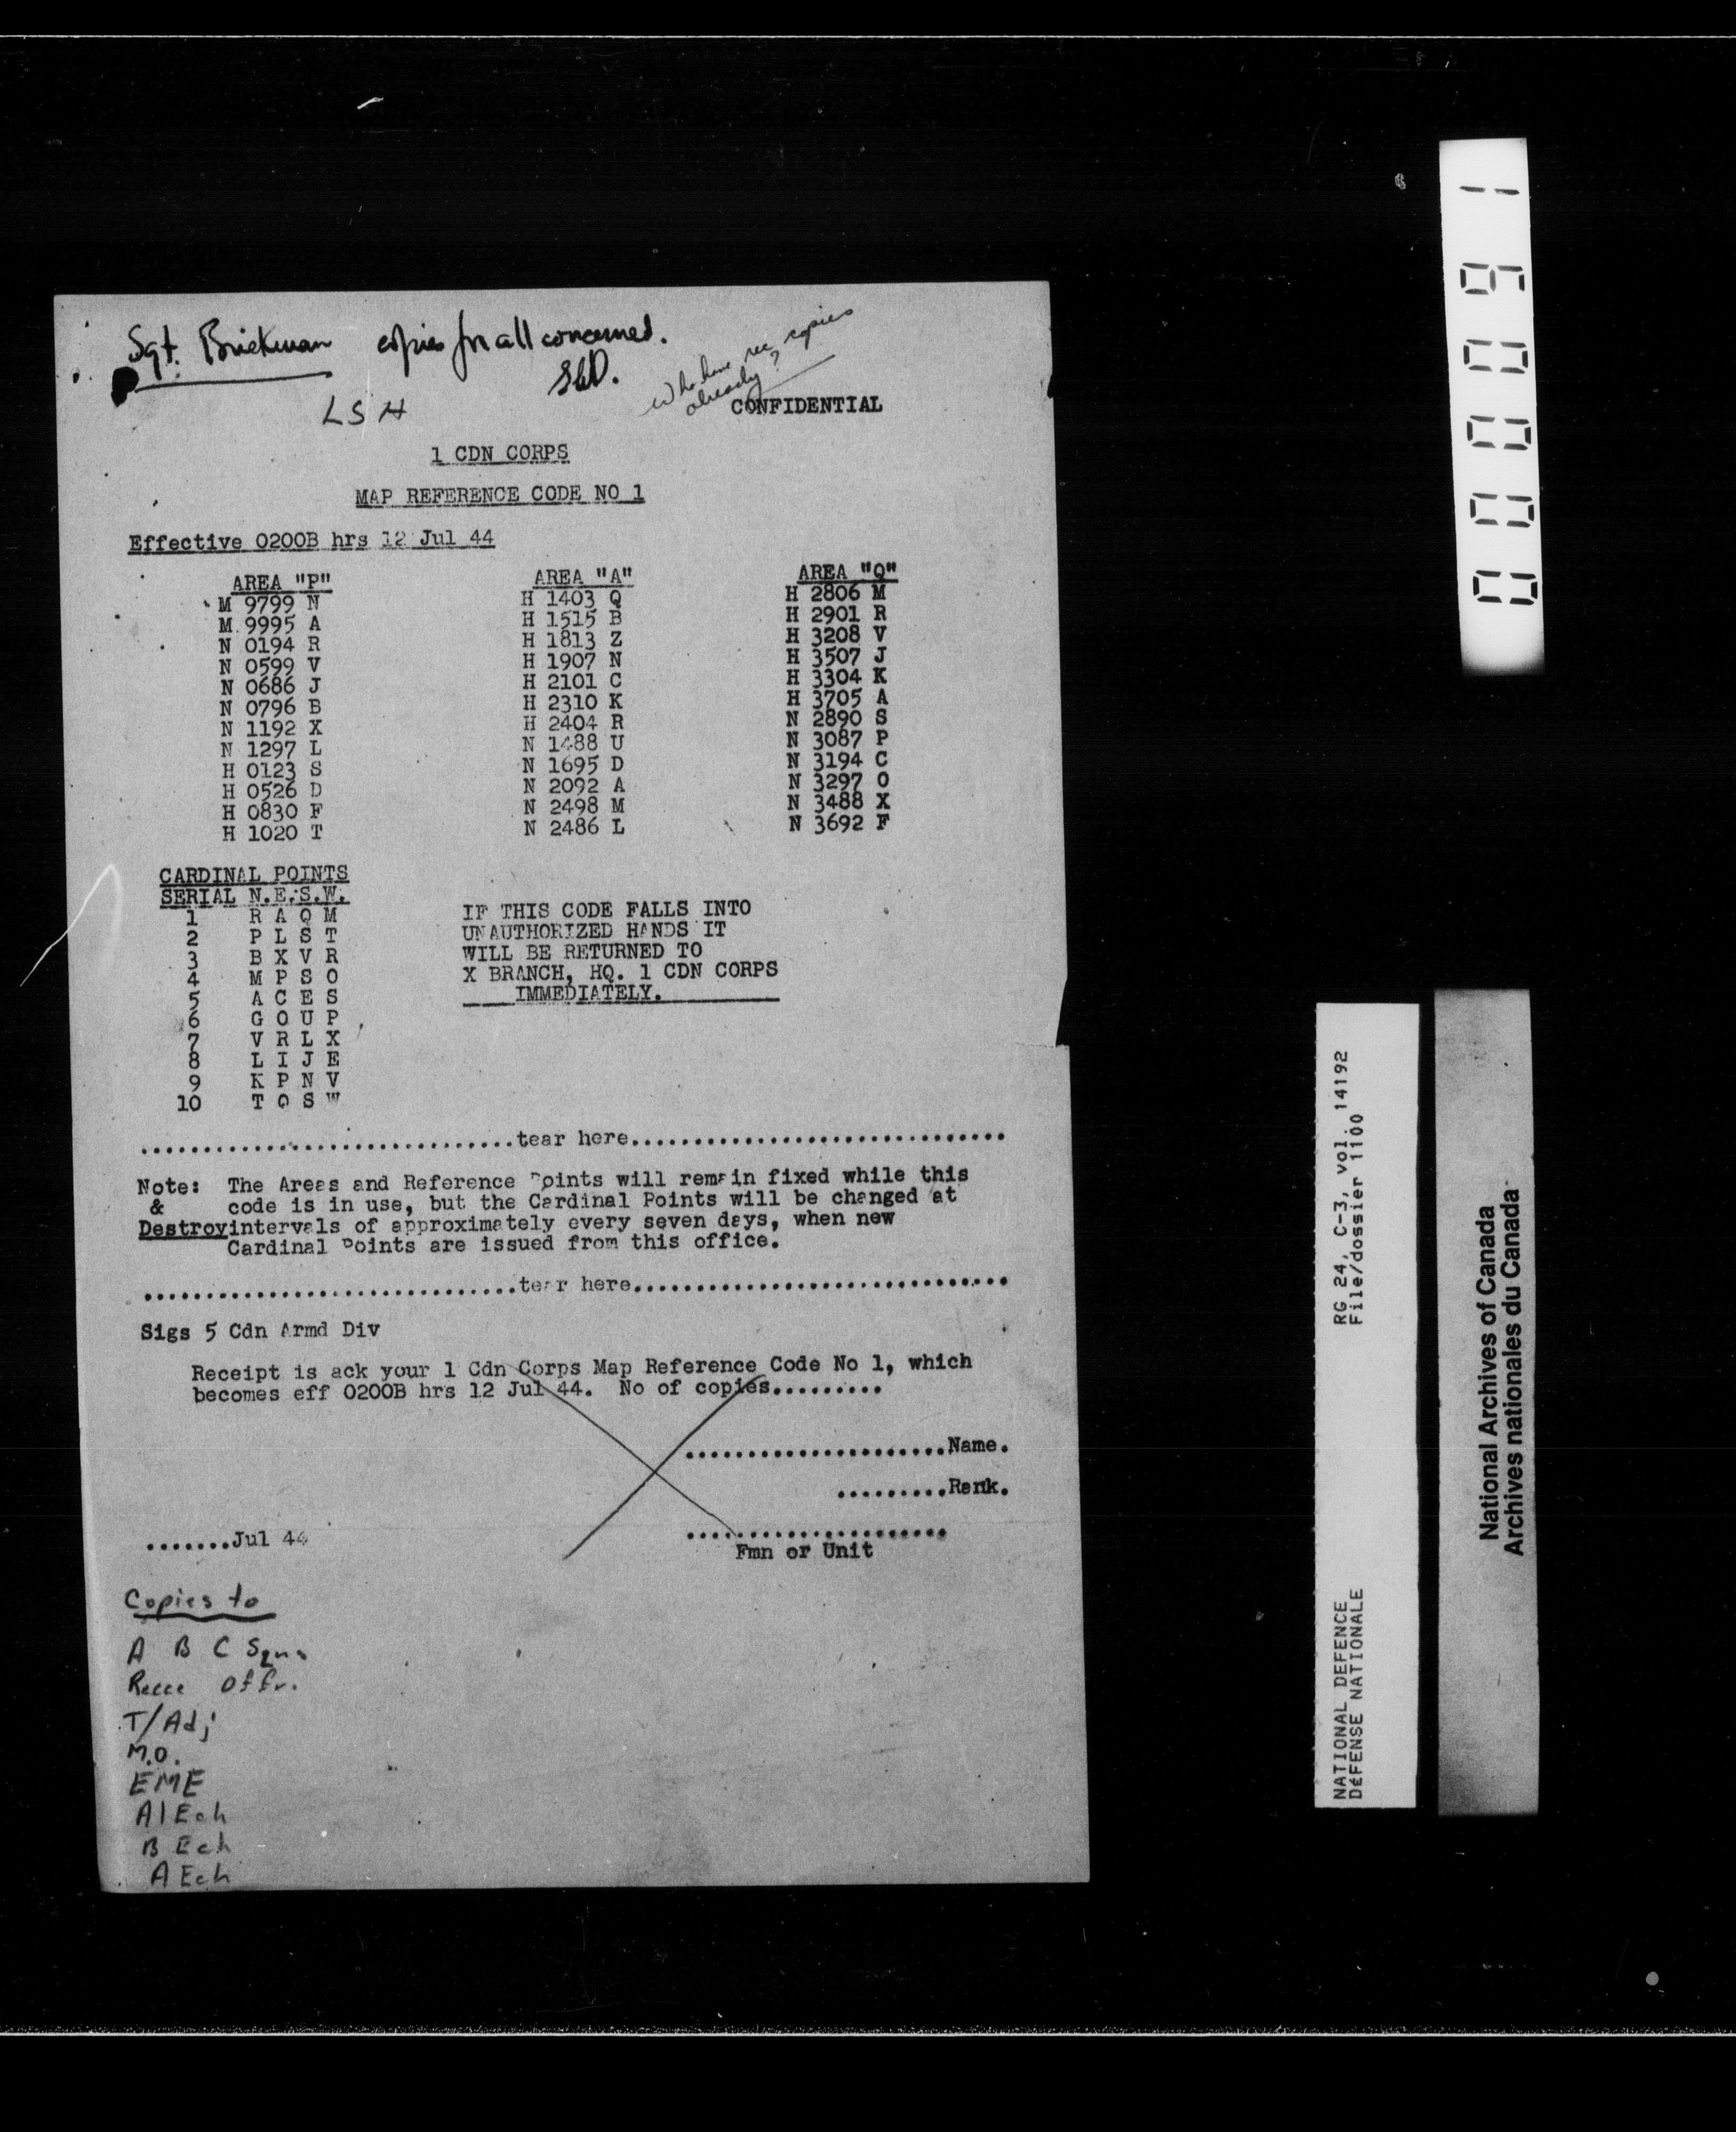 Sgt. Brickman copies for all concerned.
who have rec copies
already?
LSH
CONFIDENTIAL
1 CDN CORPS
MAP REFERENCE CODE NO 1
Effective 0200B hrs 12 Jul 44
AREA "P" AREA "A" AREA "Q"
M 9799 N H 1403 Q H 2806 M
M 9995 A H 1515 B H 2901 R
N 0194 R H 1813 Z H 3208 V
N 0599 V H 1907 N H 3507 J
N 0686 J H 2101 C H 3304 K
N 0796 B H 2310 K H 3705 A
N 1192 X H 2404 R N 2890 S
N 1297 L N 1488 U N 3087 P
H 0123 S N 1695 D N 3194 C
H 0526 D N 2092 A N 3297 O
H 0830 F N 2498 M N 3488 X
H 1020 T N 2486 L N 3692 F
CARDINAL POINTS
SERIAL N.E.S.W.
1 R A Q M
2 P L S T
3 B X V R
4 M P S O
5 A C E S
6 G O U P
7 V R L X
8 L I J E
9 K P N V
10 T Q S W
IF THIS CODE FALLS INTO
UNAUTHORIZED HANDS IT
WILL BE RETURNED TO
X BRANCH, HQ. 1 CDN CORPS
IMMEDIATELY.
..............................tear here..............................
Note: The Areas and Reference Points will remain fixed while this
& code is in use, but the Cardinal Points will be changed at
Destroy intervals of approximately every seven days, when new
Cardinal Points are issued from this office.
..............................tear here..............................
Sigs 5 Cdn Armd Div
Receipt is ack your 1 Cdn Corps Map Reference Code No 1, which
becomes eff 0200B hrs 12 Jul 44. No of copies.........
.....................Name.
.........Rank.
.......Jul 44 .....................
Fmn or Unit
Copies to
A B C Sqns
Recce Offr.
T/Adj
M.O.
EME
A1 Ech
B Ech
A Ech
000091
RG 24, C-3, vol. 14192
File/dossier 1100
NATIONAL DEFENCE
DéFENSE NATIONALE
National Archives of Canada
Archives nationales du Canada